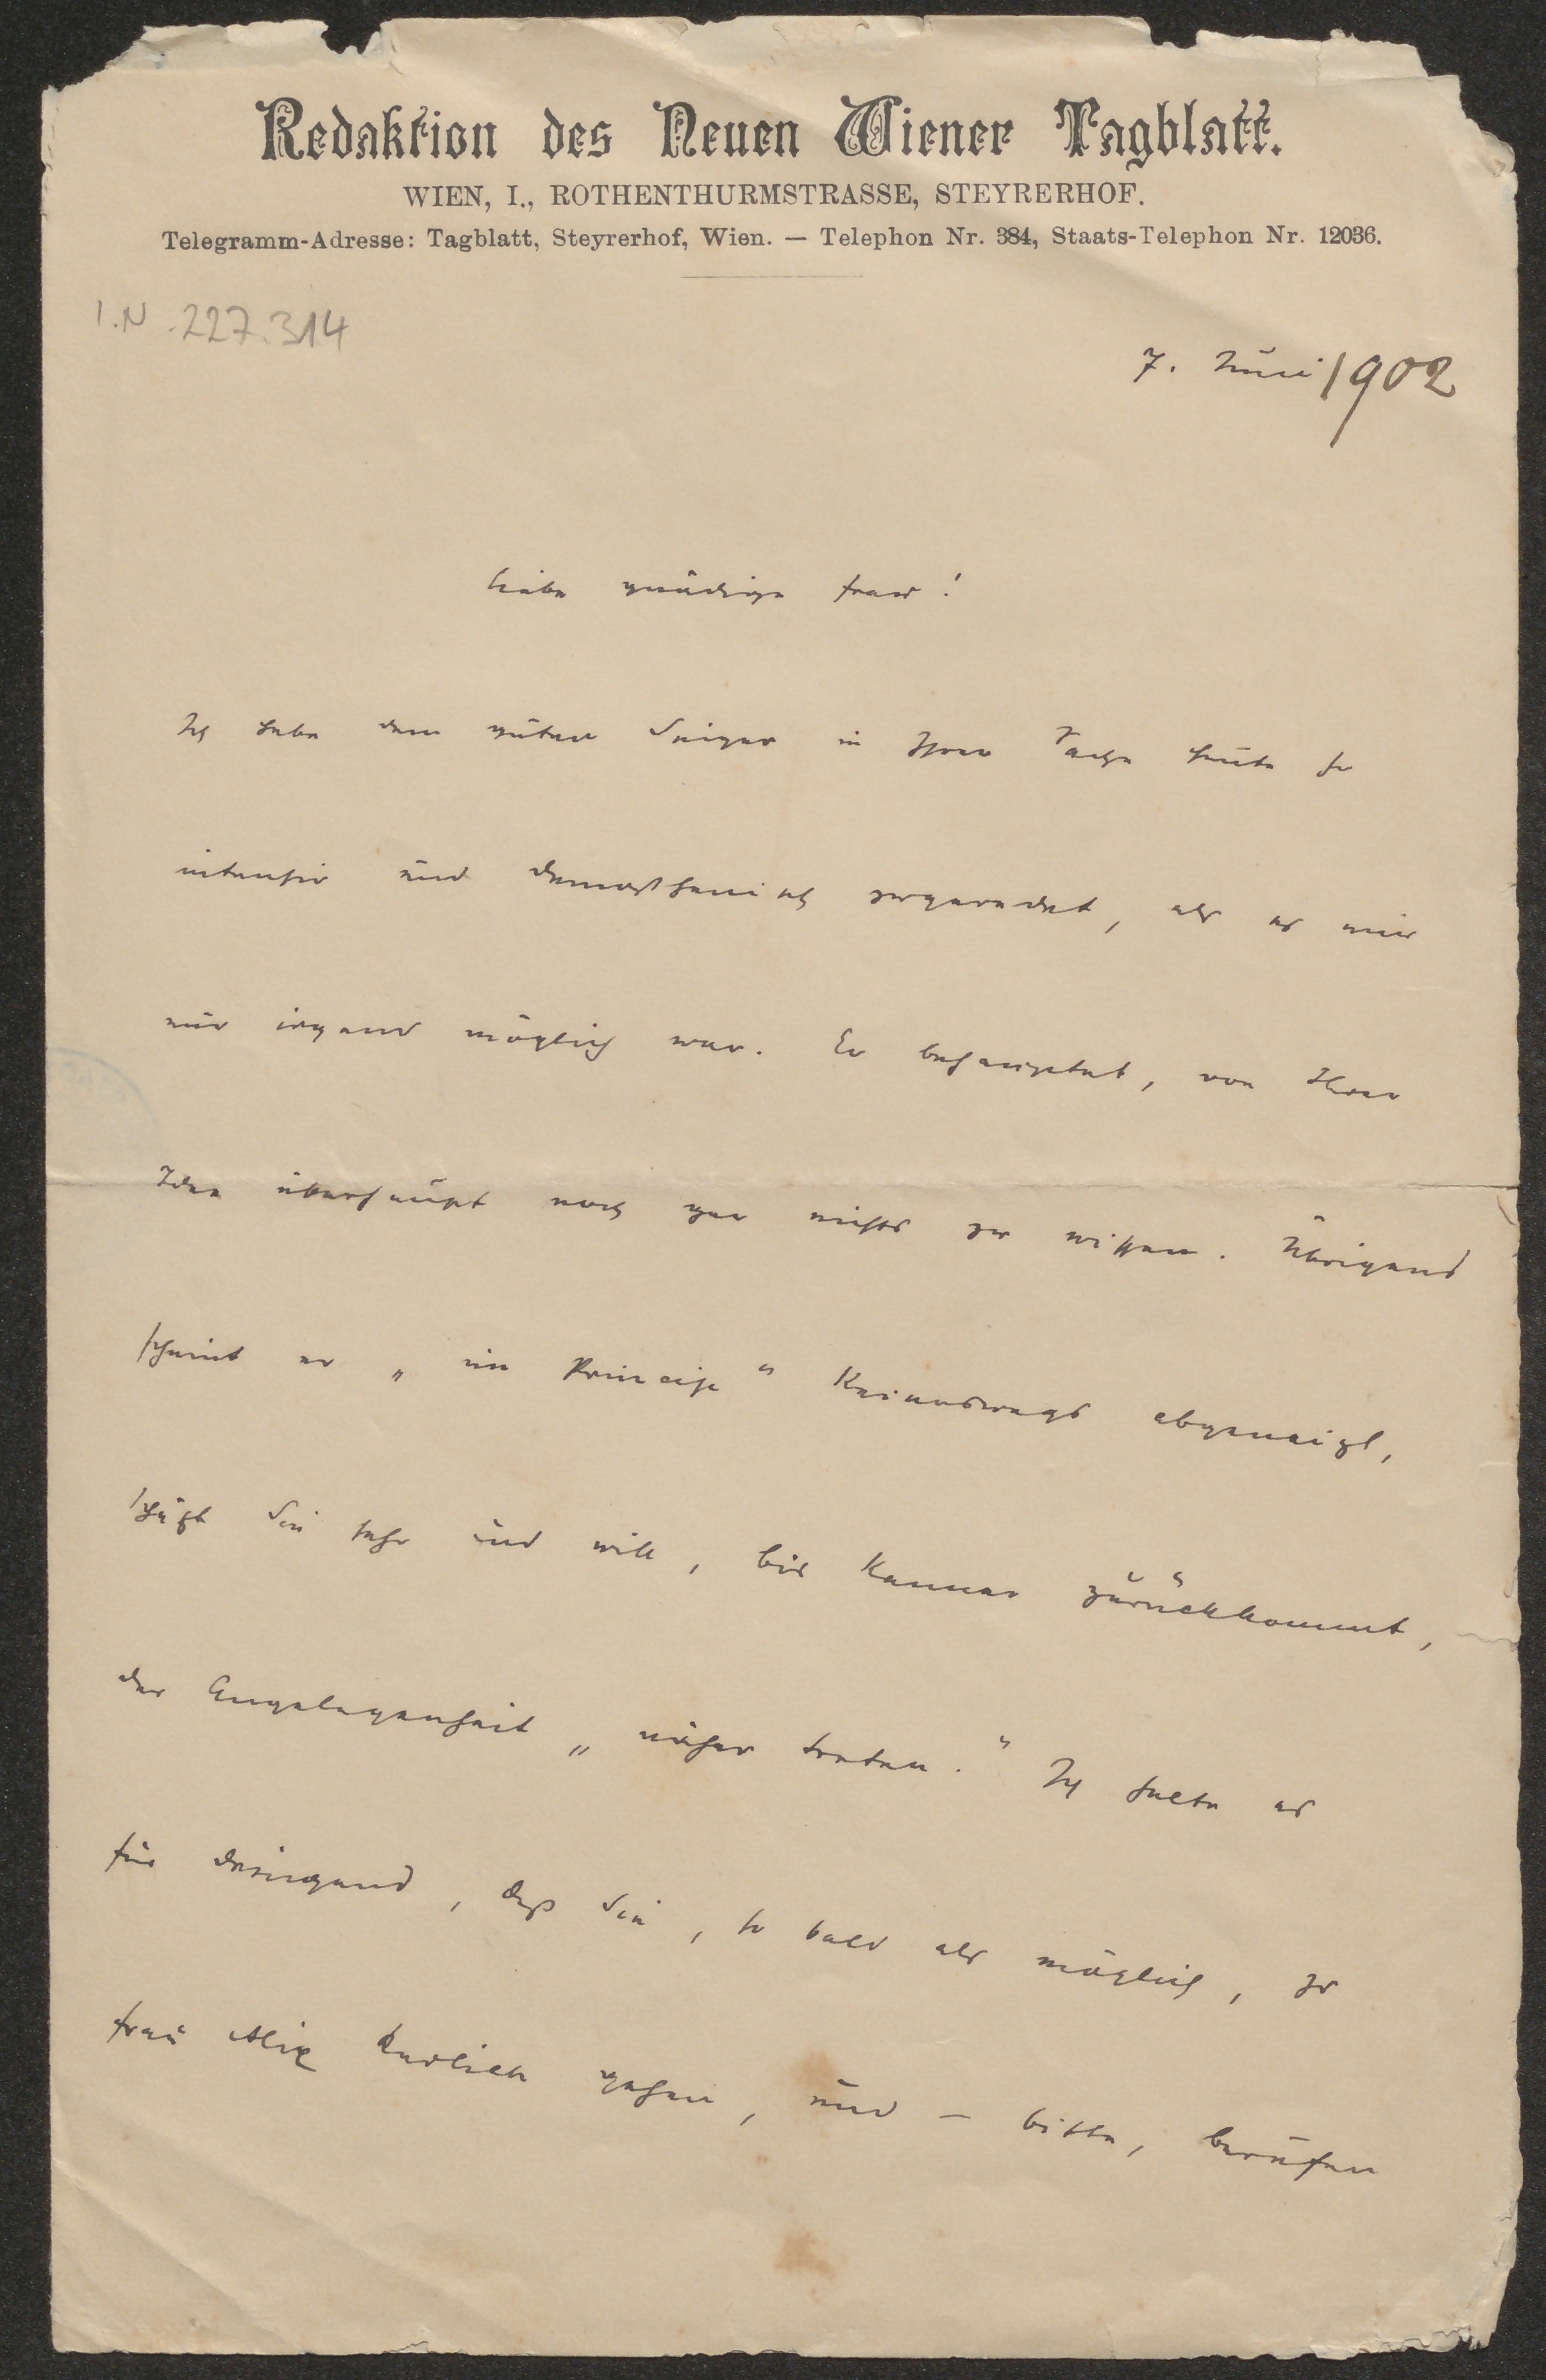 Redaktion des Neuen Wiener Tagblatt.
WIEN, I., ROTHENTHURMSTRASSE, STEYRERHOF.
Telegramm-Adresse: Tagblatt, Steyrerhof, Wien. — Telephon Nr. 384, Staats-Telephon Nr. 12036.
I.N. 227.314
7. Juni 1902
Liebe gnädige Frau!
Ich habe dem guten Singer in Ihrer Sache heute so
intensiv und demosthenisch zugeredet, als es mir
nur irgend möglich war. Er behauptet, von Ihrer
Idee überhaupt noch gar nichts zu wissen. Übrigens
scheint er „im Principe“ keineswegs abgeneigt,
schätzt Sie sehr und will, bis Kanner zurückkommt,
der Angelegenheit „näher treten.“ Ich halte es
für dringend, daß Sie, so bald als möglich, zu
Frau gehen, und – bitte, berufen